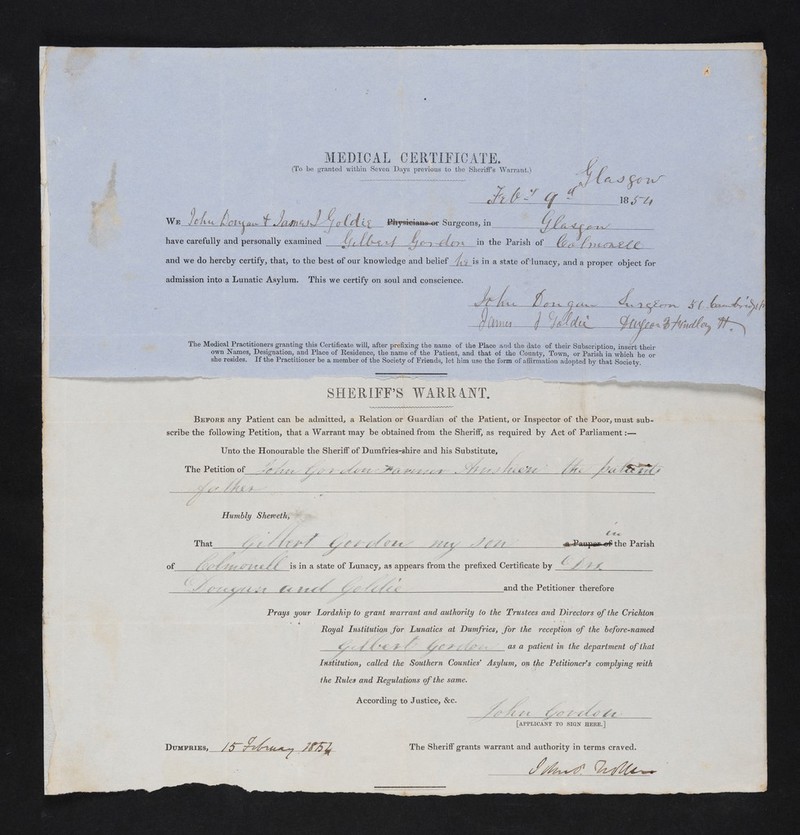 MEDICAL CERTIFICATE.
(To be granted within Seven Days previous to the Sheriff's Warrant.)
Glasgow
Feby 9th 1854
WE John Dougan & James J Goldie Physicians or Surgeons, in Glasgow
have carefully and personally examined Gilbert Gordon in the Parish of Colmonell
and we do hereby certify, that, to the best of our knowledge and belief he is in a state of lunacy, and a proper object for
admission into a Lunatic Asylum. This we certify on soul and conscience.
John Dougan Surgeon 51
James J Goldie Surgeon St.
The Medical Practitioners granting this Certificate will, after prefixing the name of the Place and the date of their Subscription, insert their
own Names, Designation, and Place of Residence, the name of the Patient, and that of the County, Town, or Parish in which he or
she resides. If the Practitioner be a member of the Society of Friends, let him use the form of affirmation adopted by that Society.
SHERIFF'S WARRANT.
BEFORE any Patient can be admitted, a Relation or Guardian of the Patient, or Inspector of the Poor, must sub-
scribe the following Petition, that a Warrant may be obtained from the Sheriff, as required by Act of Parliament:—
Unto the Honourable the Sheriff of Dumfries-shire and his Substitute,
The Petition of John Gordon Farmer the patients
father
Humbly Sheweth,
in
That Gilbert Gordon my son a Pauper of the Parish
of Colmonell is in a state of Lunacy, as appears from the prefixed Certificate by Drs
Dougan and Goldie and the Petitioner therefore
Prays your Lordship to grant warrant and authority to the Trustees and Directors of the Crichton
Royal Institution for Lunatics at Dumfries, for the reception of the before-named
Gilbert Gordon as a patient in the department of that
Institution, called the Southern Counties' Asylum, on the Petitioner's complying with
the Rules and Regulations of the same.
According to Justice, &c.
John Gordon
[APPLICANT TO SIGN HERE.]
DUMFRIES, 15 February 1854 The Sheriff grants warrant and authority in terms craved.